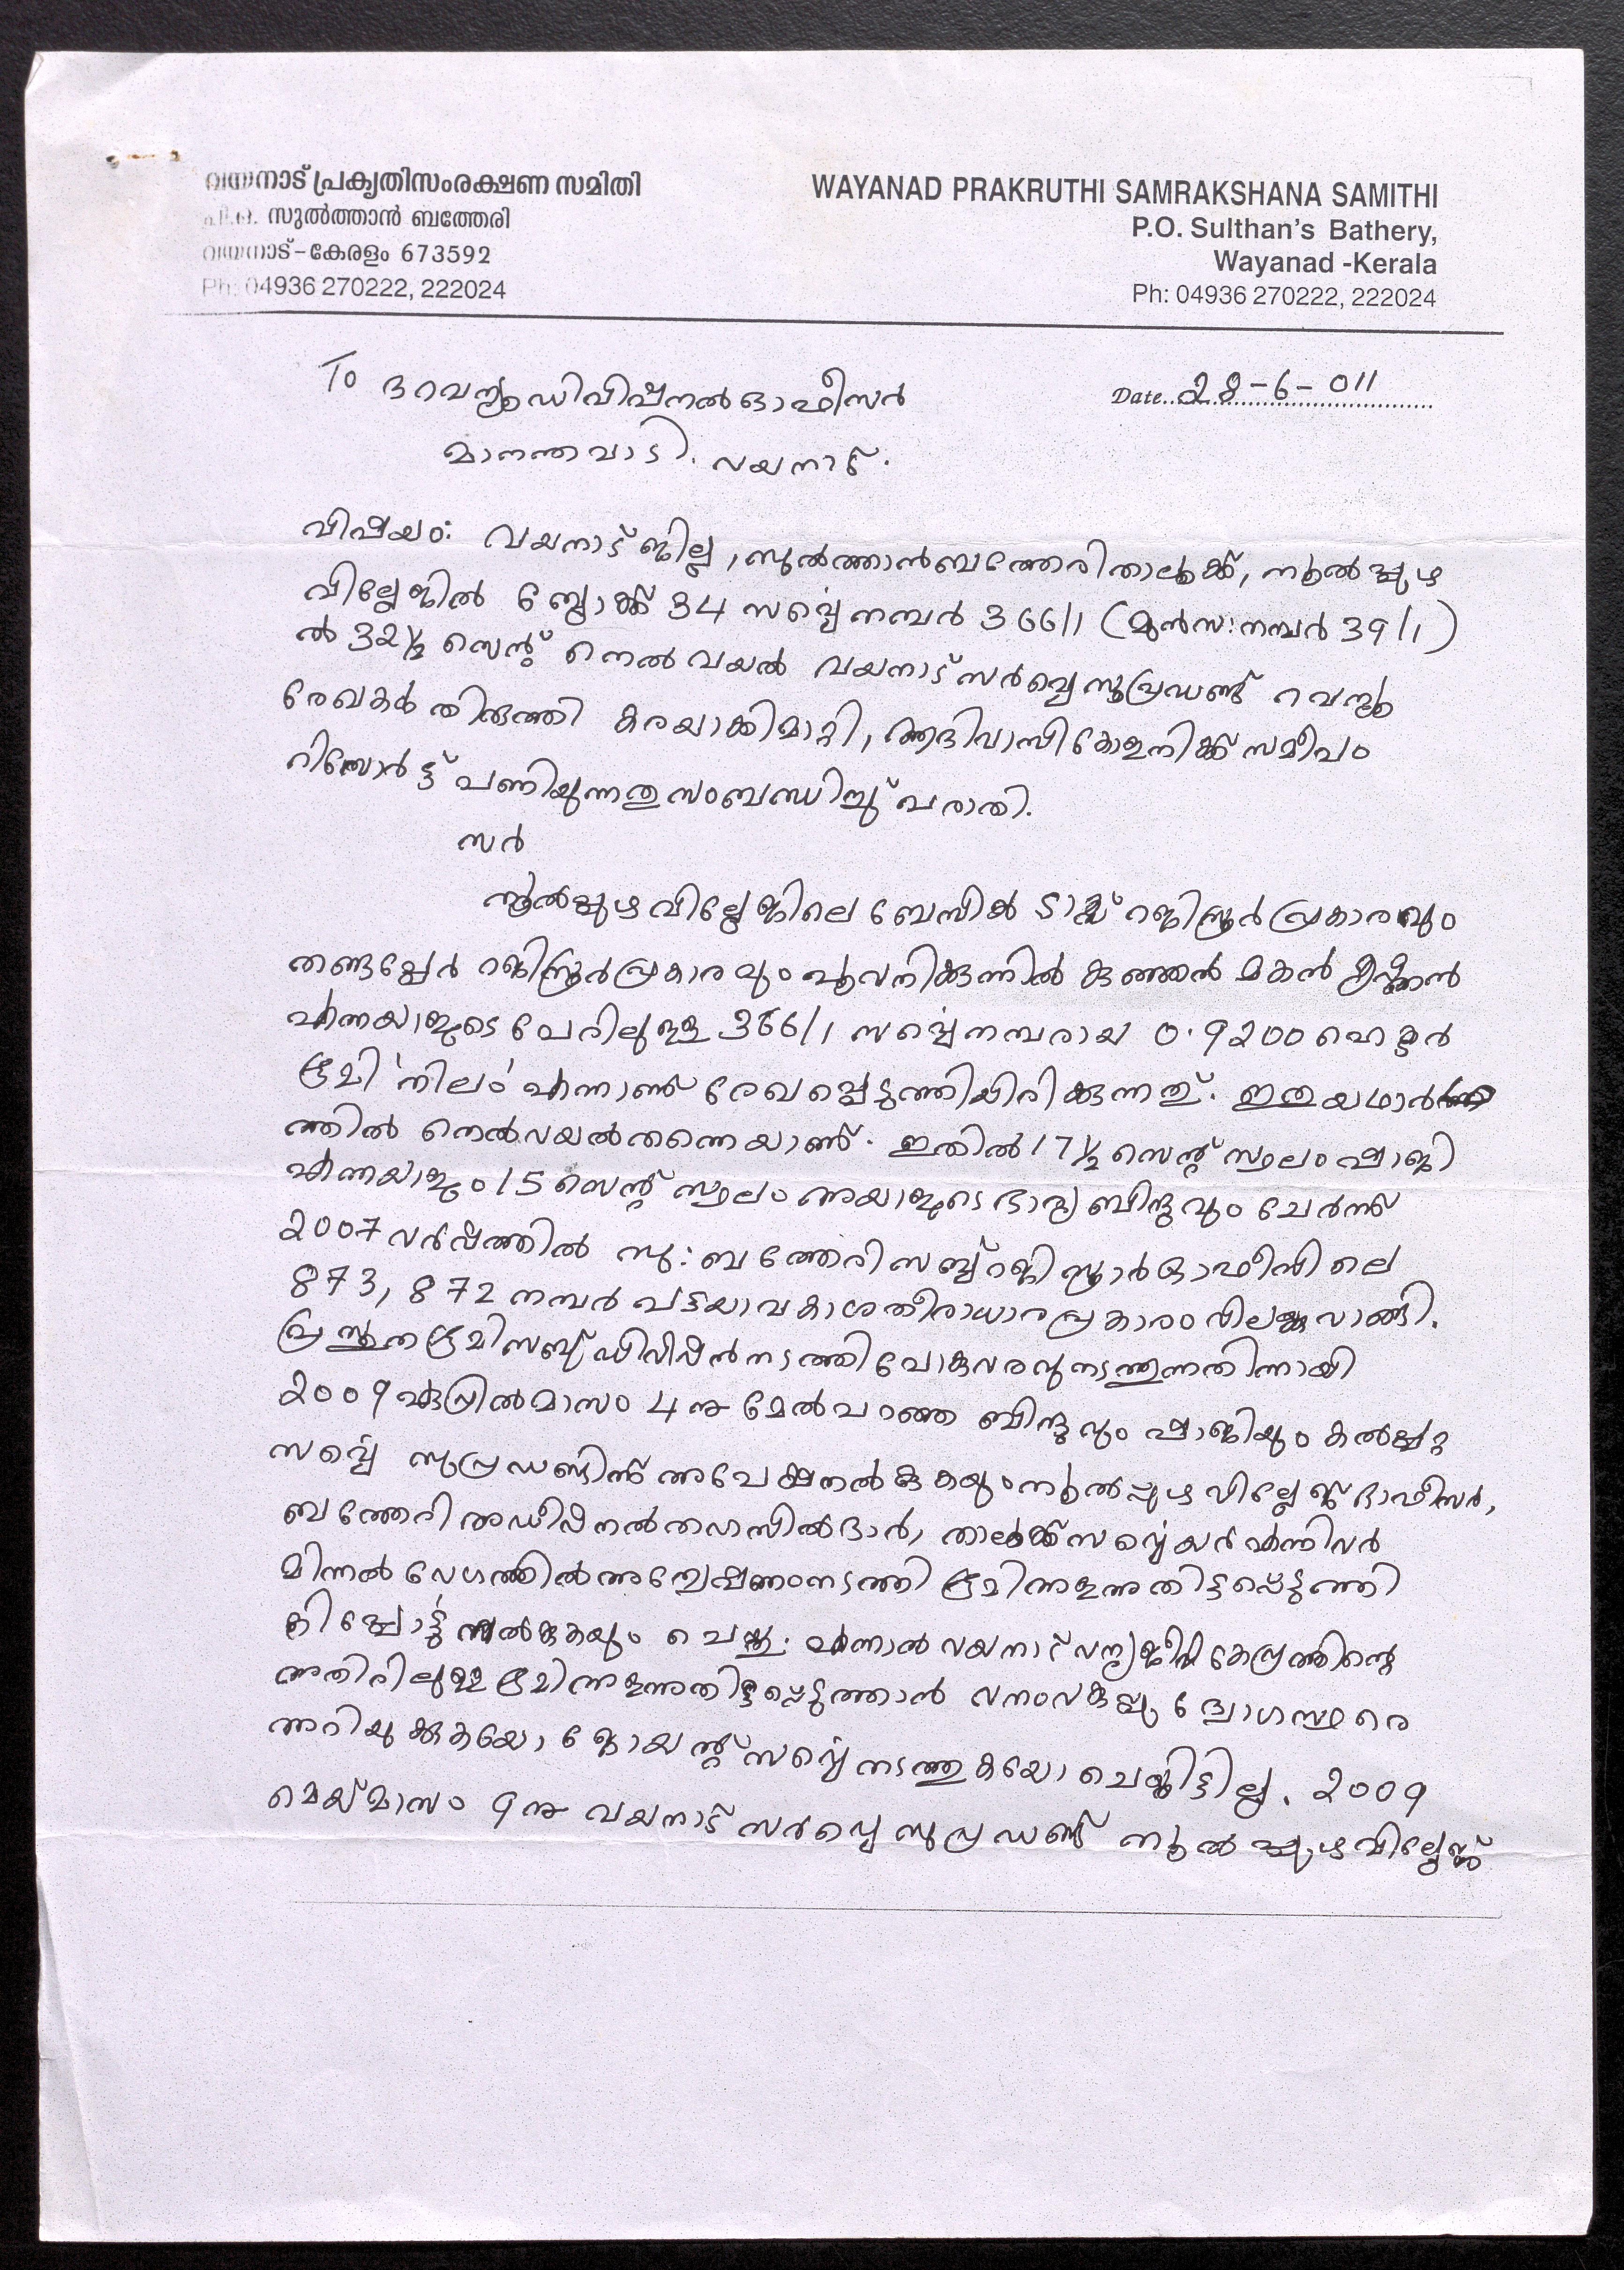 വയനാട് പ്രകൃതിസംരക്ഷണ സമിതി
പി.ഒ. സുൽത്താൻ ബത്തേരി
വയനാട്-കേരളം 673592
Ph: 04936 270222, 222024
WAYANAD PRAKRUTHI SAMRAKSHANA SAMITHI
P.O. Sulthan's Bathery,
Wayanad -Kerala
Ph: 04936 270222, 222024
To ദ റവന്യൂ ഡിവിഷനൽ ഓഫീസർ
Date 28-6-011
മാനന്തവാടി. വയനാട്.
വിഷയം: വയനാട് ജില്ല, സുൽത്താൻബത്തേരി താലൂക്ക്, നൂൽപ്പുഴ
വില്ലേജിൽ ബ്ലോക്ക് 34 സർവ്വെ നമ്പർ 366/1 (മുൻസ: നമ്പർ 39/1)
ൽ 32½ സെന്റ് നെൽ വയൽ വയനാട് സർവ്വെ സൂപ്രഡണ്ട് റവന്യൂ
രേഖകൾ തിരുത്തി കരയാക്കിമാറ്റി, ആദിവാസി കോളനിക്ക് സമീപം
റിസോർട്ട് പണിയുന്നതു സംബന്ധിച്ച് പരാതി.
സർ
നൂൽപ്പുഴ വില്ലേജിലെ ബേസിക് ടാക്സ് റജിസ്റ്റർ പ്രകാരവും
തണ്ടപ്പേർ റജിസ്റ്റർ പ്രകാരവും പൂവനിക്കുന്നിൽ കുഞ്ഞൻ മകൻ കൃഷ്ണൻ
എന്നയാളുടെ പേരിലുള്ള 366/1 സർവ്വെ നമ്പരായ 0.9200 ഹെക്ടർ
ഭൂമി 'നിലം' എന്നാണ് രേഖപ്പെടുത്തിയിരിക്കുന്നത്. ഇതു യഥാർത്ഥ
ത്തിൽ നെൽവയൽ തന്നെയാണ്. ഇതിൽ 17½ സെന്റ് സ്ഥലം ഷാജി
എന്നയാളും 15 സെന്റ് സ്ഥലം അയാളുടെ ഭാര്യ ബിന്ദുവും ചേർന്ന്
2007 വർഷത്തിൽ സു: ബത്തേരി സബ്ബ് റജിസ്ട്രാർ ഓഫീസിലെ
873, 872 നമ്പർ പട്ടയാവകാശ തീരാധാര പ്രകാരം വിലക്കു വാങ്ങി.
പ്രസ്തുത ഭൂമി സബ്ബ് ഡിവിഷൻ നടത്തി പോക്കുവരവു നടത്തുന്നതിന്നായി
2009 ഏപ്രിൽ മാസം 4 നു മേൽപറഞ്ഞ ബിന്ദുവും ഷാജിയും കൽപ്പറ്റ
സർവ്വെ സുപ്രഡണ്ടിന്ന് അപേക്ഷ നൽകുകയും നൂൽപ്പുഴ വില്ലേജ് ഓഫീസർ,
ബത്തേറി അഡീഷനൽ തഹസിൽദാർ, താലൂക്ക് സർവ്വെയർ എന്നിവർ
മിന്നൽ വേഗത്തിൽ അന്വേഷണം നടത്തി ഭൂമി അളന്നു തിട്ടപ്പെടുത്തി
റിപ്പോട്ടു നൽകുകയും ചെയ്തു. എന്നാൽ വയനാട് വന്യജീവി കേന്ദ്രത്തിന്റെ
അതിരിലുള്ള ഭൂമി അളന്നുതിട്ടപ്പെടുത്താൻ വനംവകുപ്പു ദ്യോഗസ്ഥരെ
അറിയുക്കുകയോ, ജോയന്റ് സർവ്വെ നടത്തുകയോ ചെയ്തിട്ടില്ല. 2009
മെയ് മാസം 9 നു വയനാട് സർവ്വെ സുപ്രഡണ്ട് നൂൽപ്പുഴ വില്ലേജ്